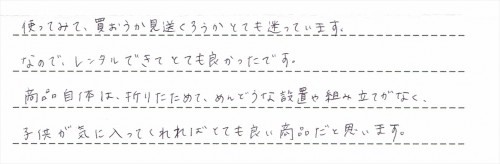 使ってみて、買おうか見送くろうかとても迷っています。
なので、レンタルできてとても良かったです。
商品自体は、折りたためて、めんどうな設置や組み立てがなく、
子供が気に入ってくれればとても良い商品だと思います。